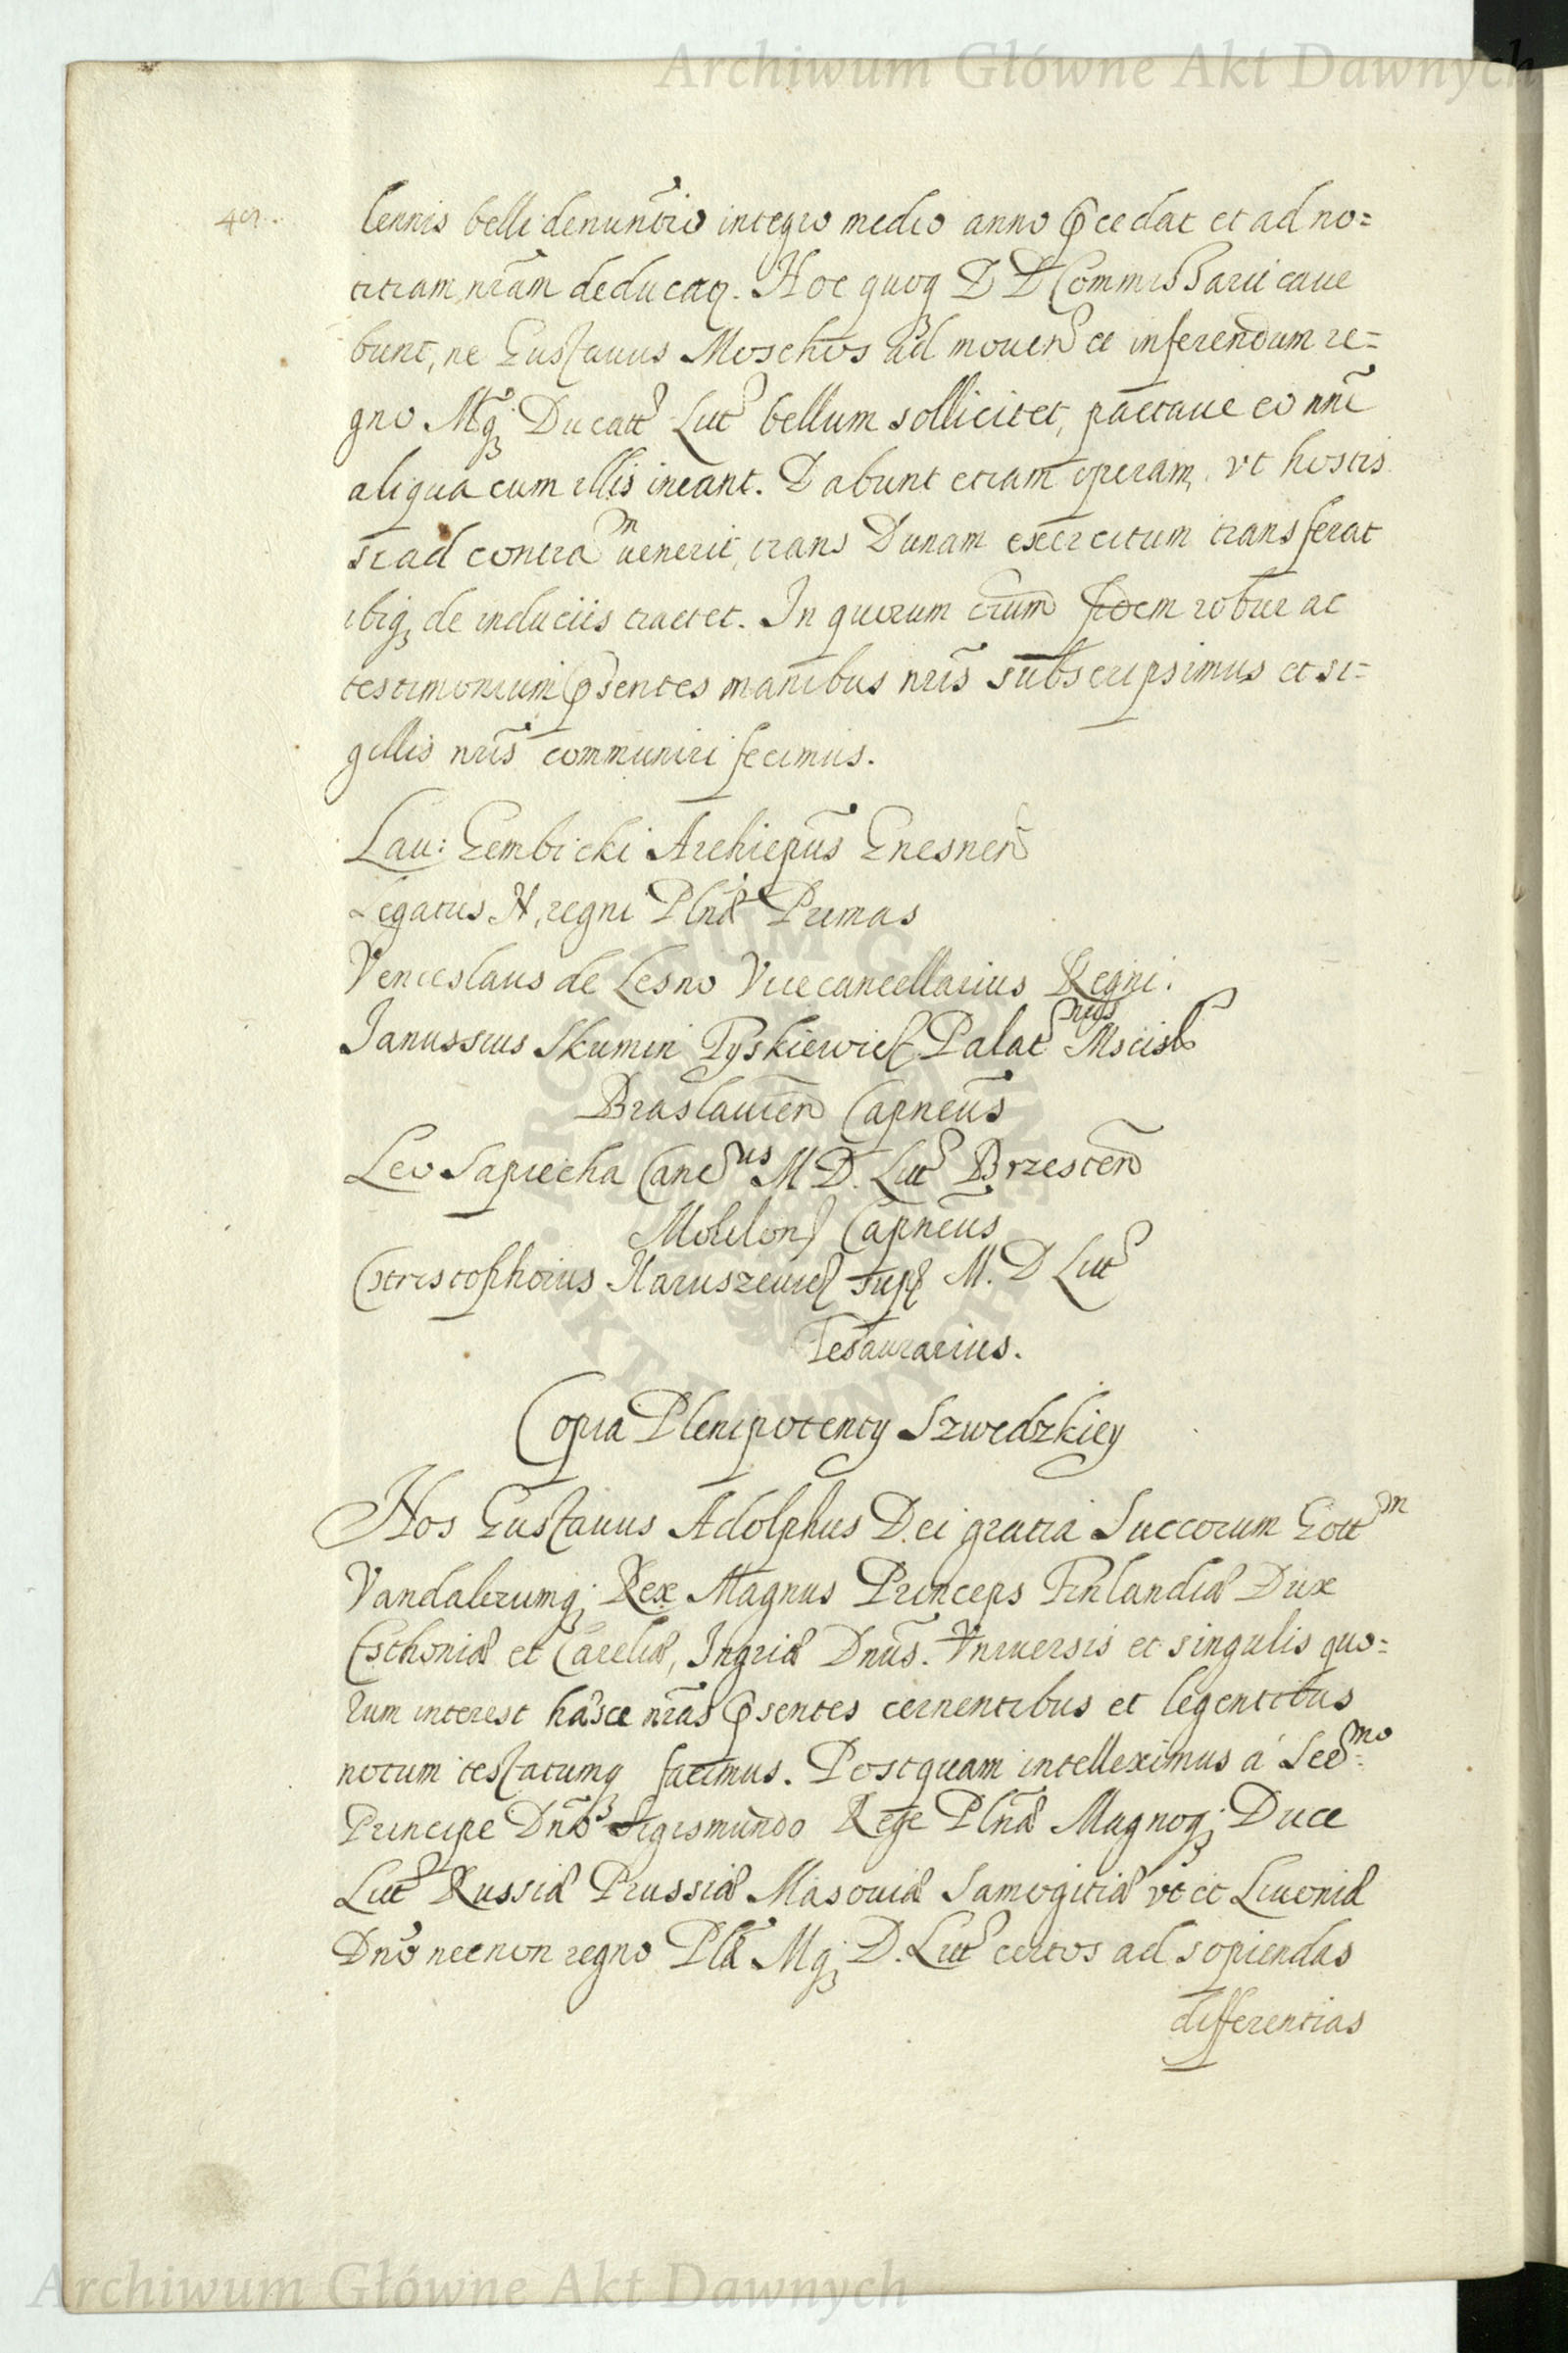 Archiwum Główne Akt Dawnych
lennis belli denuntio integro medio anno pcedat et ad no=
titiam nram deducatq. Hoc quoq D D Commissarii caue
bunt, ne Gustauus Moschos ad mouend et inferendum re=
gno Mq; Ducatt Lit bellum sollicitet, pactaue eo nni
aliqua cum illis ineant. Dabunt etiam operam, vt hostis
si ad contra m uenerit, trans Dunam exercitum transferat
ibiq; de induciis tractet. In quorum oium fidem robur ac
testimonium psentes manibus nris subscripsimus et si=
gillis nris communiri fecimus.
Lau: Gembicki Archiepus Gnesnen
Legatus N, regni Plnæ Primas
Venceslaus de Lesno Vicecancellarius Regni.
Janussius Skumin Tyskiewicz Palat nus Mscisl
Braslauien Capneus
Leo Sapiecha Canc us M D. Lit Brzesten
Mohilon Capneus
Christophorus Naruszewicz Sup M. D Lit
Tesaurarius.
Copia Plenipotency Szwedzkiey
Nos Gustauus Adolphus Dei gratia Suecorum Gott m
Vandalorumq; Rex Magnus Princeps Finlandiæ Dux
Esthoniæ et Careliæ, Ingriæ Dnus. Vniuersis et singulis quo=
rum interest hasce nras psentes cernentibus et legentibus
notum testatumq facimus. Postquam intelleximus á Ser mo
Principe Dno Sigismundo Rege Plnæ Magnoq; Duce
Lit Russiæ Prussiæ Masouiæ Samogitiæ vt et Liuoniæ
Dno necnon regno Plæ Mq; D. Lit certos ad sopiendas
differentias
Archiwum Główne Akt Dawnych